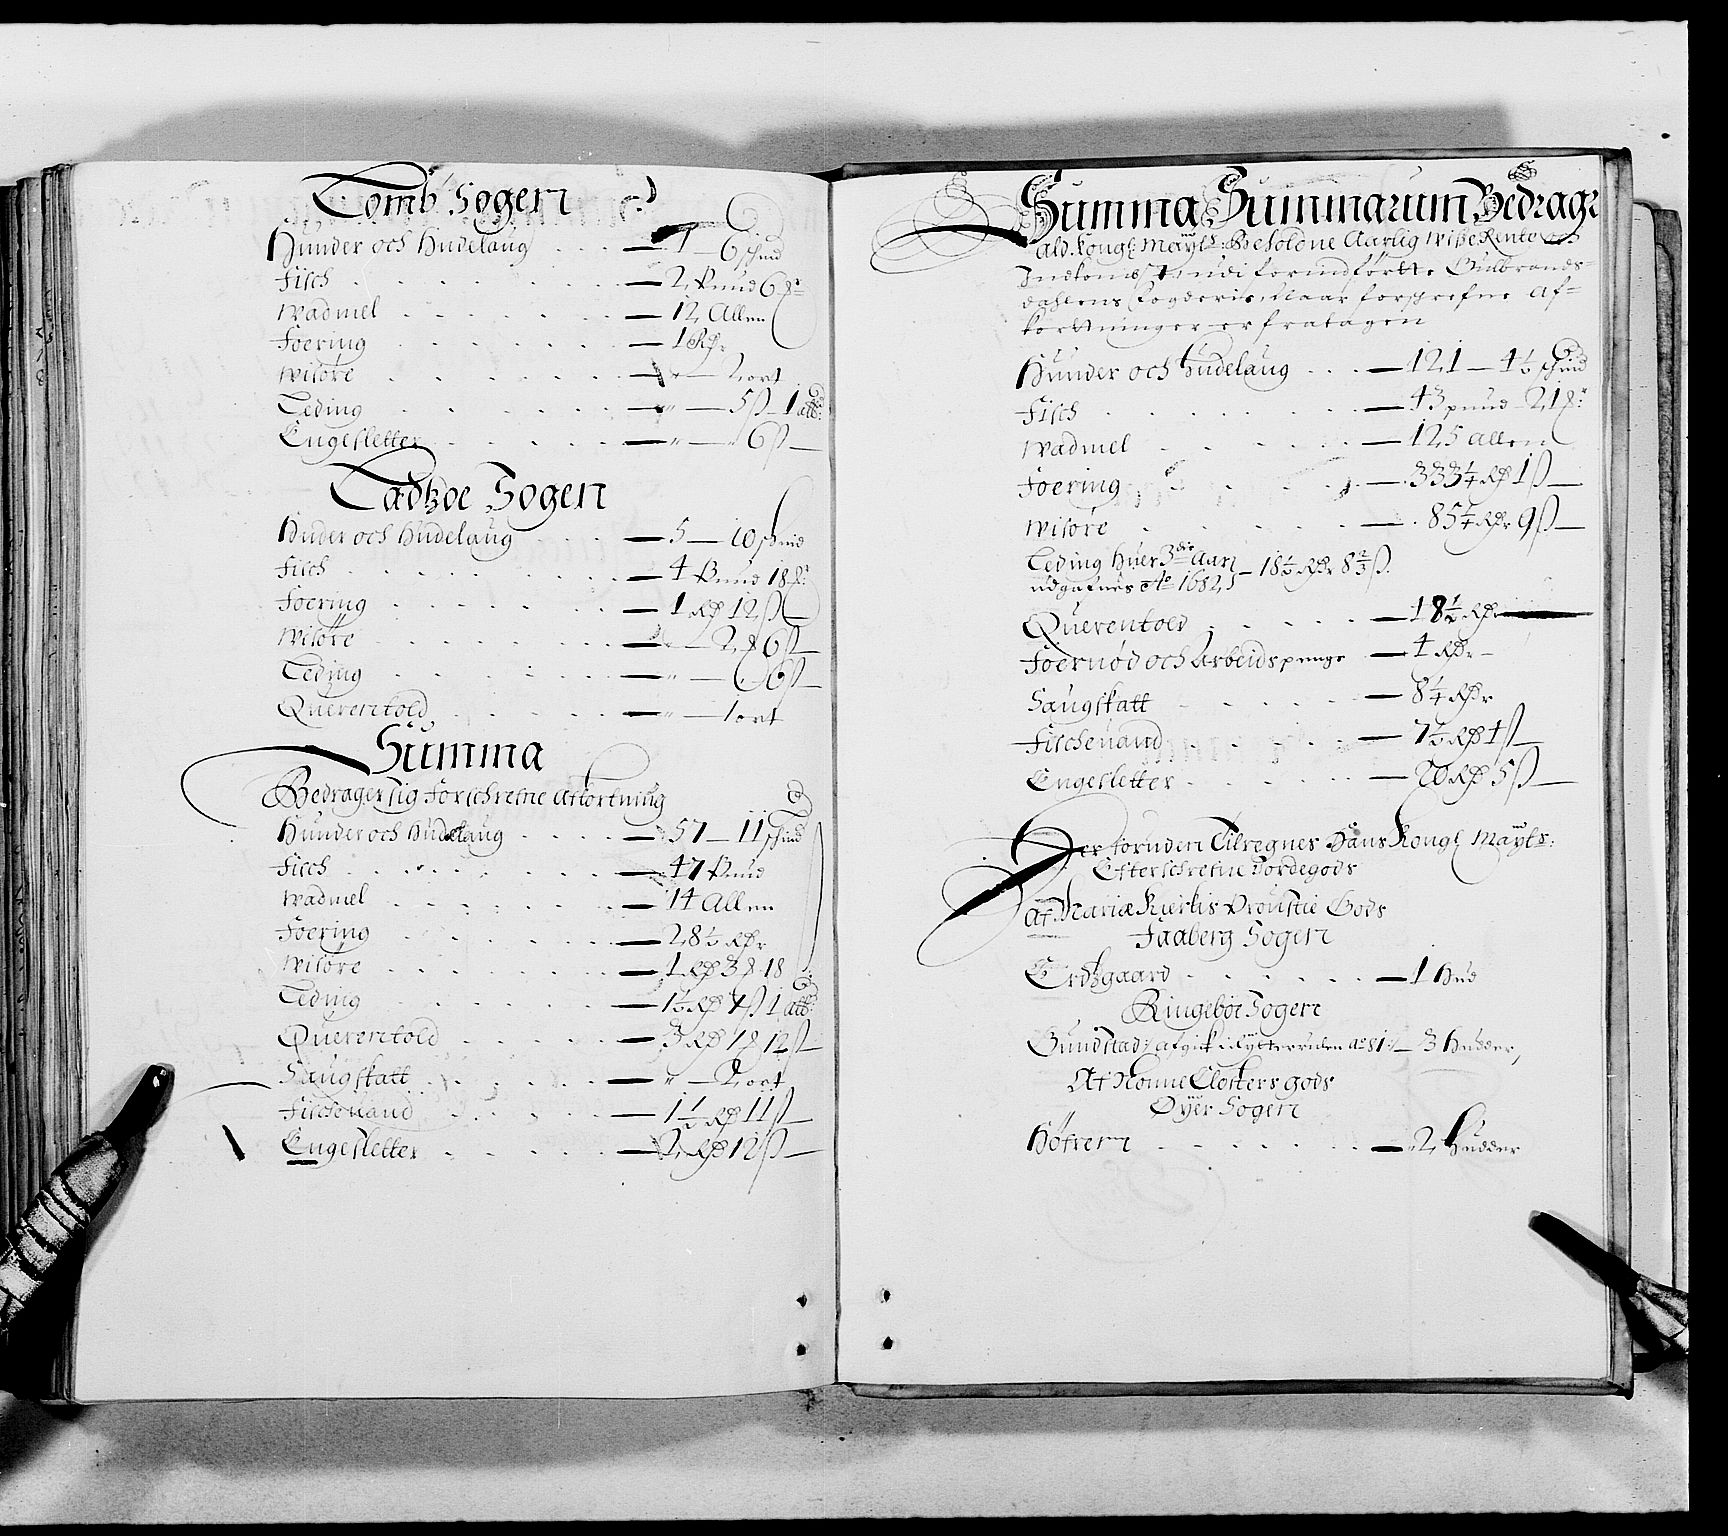 Lomb Sogen
Hunder och Hudelaug — 1 — 6 schind
Fisch — 2 Pund 6
wadmel — 12 Allen
Foering — 1 Rdr
wisøre — " — 2 ort
Leding — " — 5 ß 1 alb:
Engesletter — " — 6 ß —
Ladzoe Sogen
Huder och Hudelaug — 5 — 10 schind
Fisch — 4 Pund 18
Foering — 1 Rdr 12 ß —
wisøre — " — 2 8 6 ß —
Leding — " — 6 ß —
Querentold — " — 1 ort
Summa
Bedrager sig forschrefne Afkortning
Hunder och Hudelaug — 57 — 11 schind
Fisch — 47 Pund
wadmel — 14 Allen
Foering — 28½ Rdr
wisøre — 1 Rdr 3 8 18
Leding — 1½ Rdr 4 ß 1 alb:
Querentold — 3 Rdr 18 12 ß —
Saugskatt — " — 2 ort
Fischeuand — 1½ Rdr 11 ß —
Engesletter — 2 Rdr 12 ß —
Summa Summarum Bedrager
ald Kongl: Mayts: Beholdne Aarlig wiße Rente och
Indkomst udi forindførte Gulbrands-
dahlens Fogderie, naar forschrefne Af-
kortninger er fratagen
Hunder och Hudelaug — 121 — 4½ schind
Fisch — 43 pund 21
wadmel — 125 Allen
Foering — 333¼ Rdr 1 ß —
wisøre — 85¼ Rdr 9 ß —
Leding huer 3die Aar
udgafues Ao 1682 — 18½ Rdr 8⅔ ß
Querentold — 18½ Rdr —
Foernød och Arbeidspenge — 4 Rdr —
Saugskatt — 8¼ Rdr
Fischeuand — 7½ Rdr 4 ß —
Engesletter — 20 Rdr 5 ß —
Der foruden Tilregnes Hans Kongl Mayts:
Efterschrefne Jordegods
Af Mariæ Kierkis Proustie Gods
Faaberg Sogen
Erdzgaard — 1 Hud
Ringeboe Sogen
Gundstad /: afgick i Rytterruden ao 81 :/ — 3 Hudder,
Af Nonne Closters gods
Øyer Sogen
Høfren — 2 Hudder